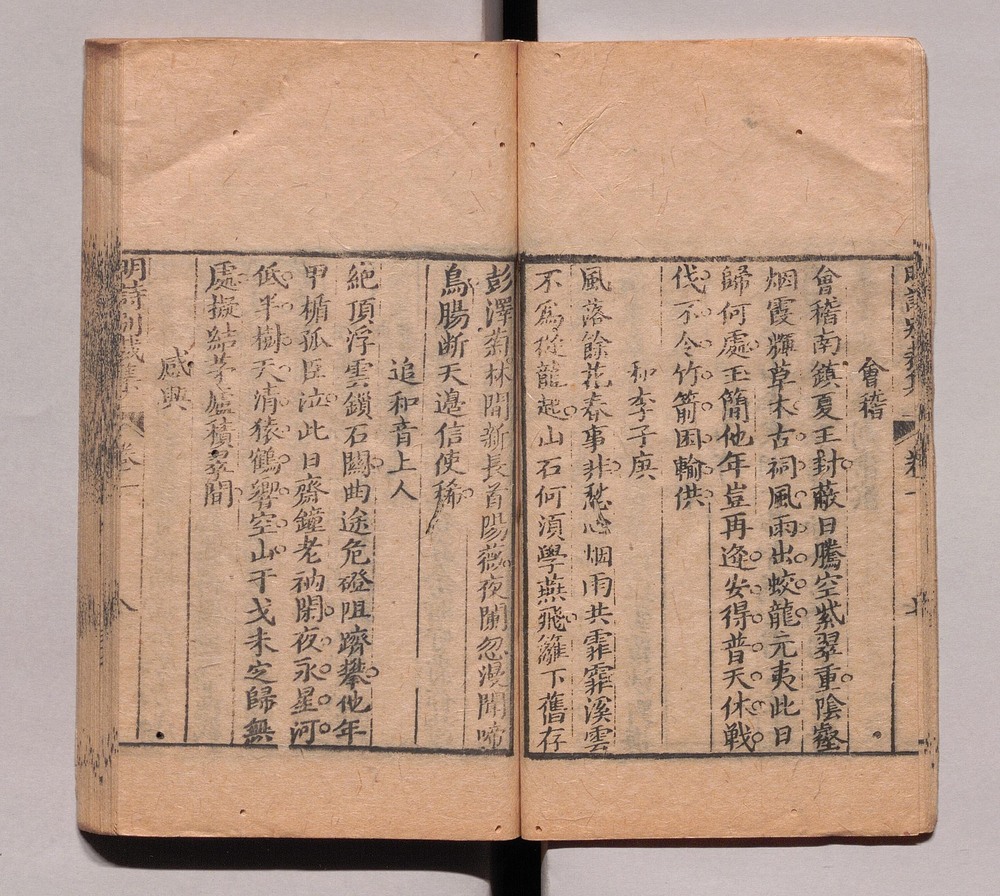 會稽
會稽南鎮夏王封蔽日騰空紫翠重陰壑
烟霞輝草木古祠風雨出蛟龍元夷此日
歸何處玉簡他年豈再逢安得普天休戰
伐不令竹箭困輸供
和李子庚
風落餘花春事非愁心烟雨共霏霏溪雲
不爲從龍起山石何須學燕飛籬下舊存
彭澤菊林間新長首陽薇夜闌忽漫聞啼
鳥腸斷天邊信使稀
追和音上人
絕頂浮雲鎖石關曲途危磴阻躋攀他年
甲楯孤臣泣此日齋鐘老衲閑夜永星河
低半樹天清猿鶴響空山干戈未定歸無
處擬結茅廬積翠間
感興
明詩別裁集 卷一 八